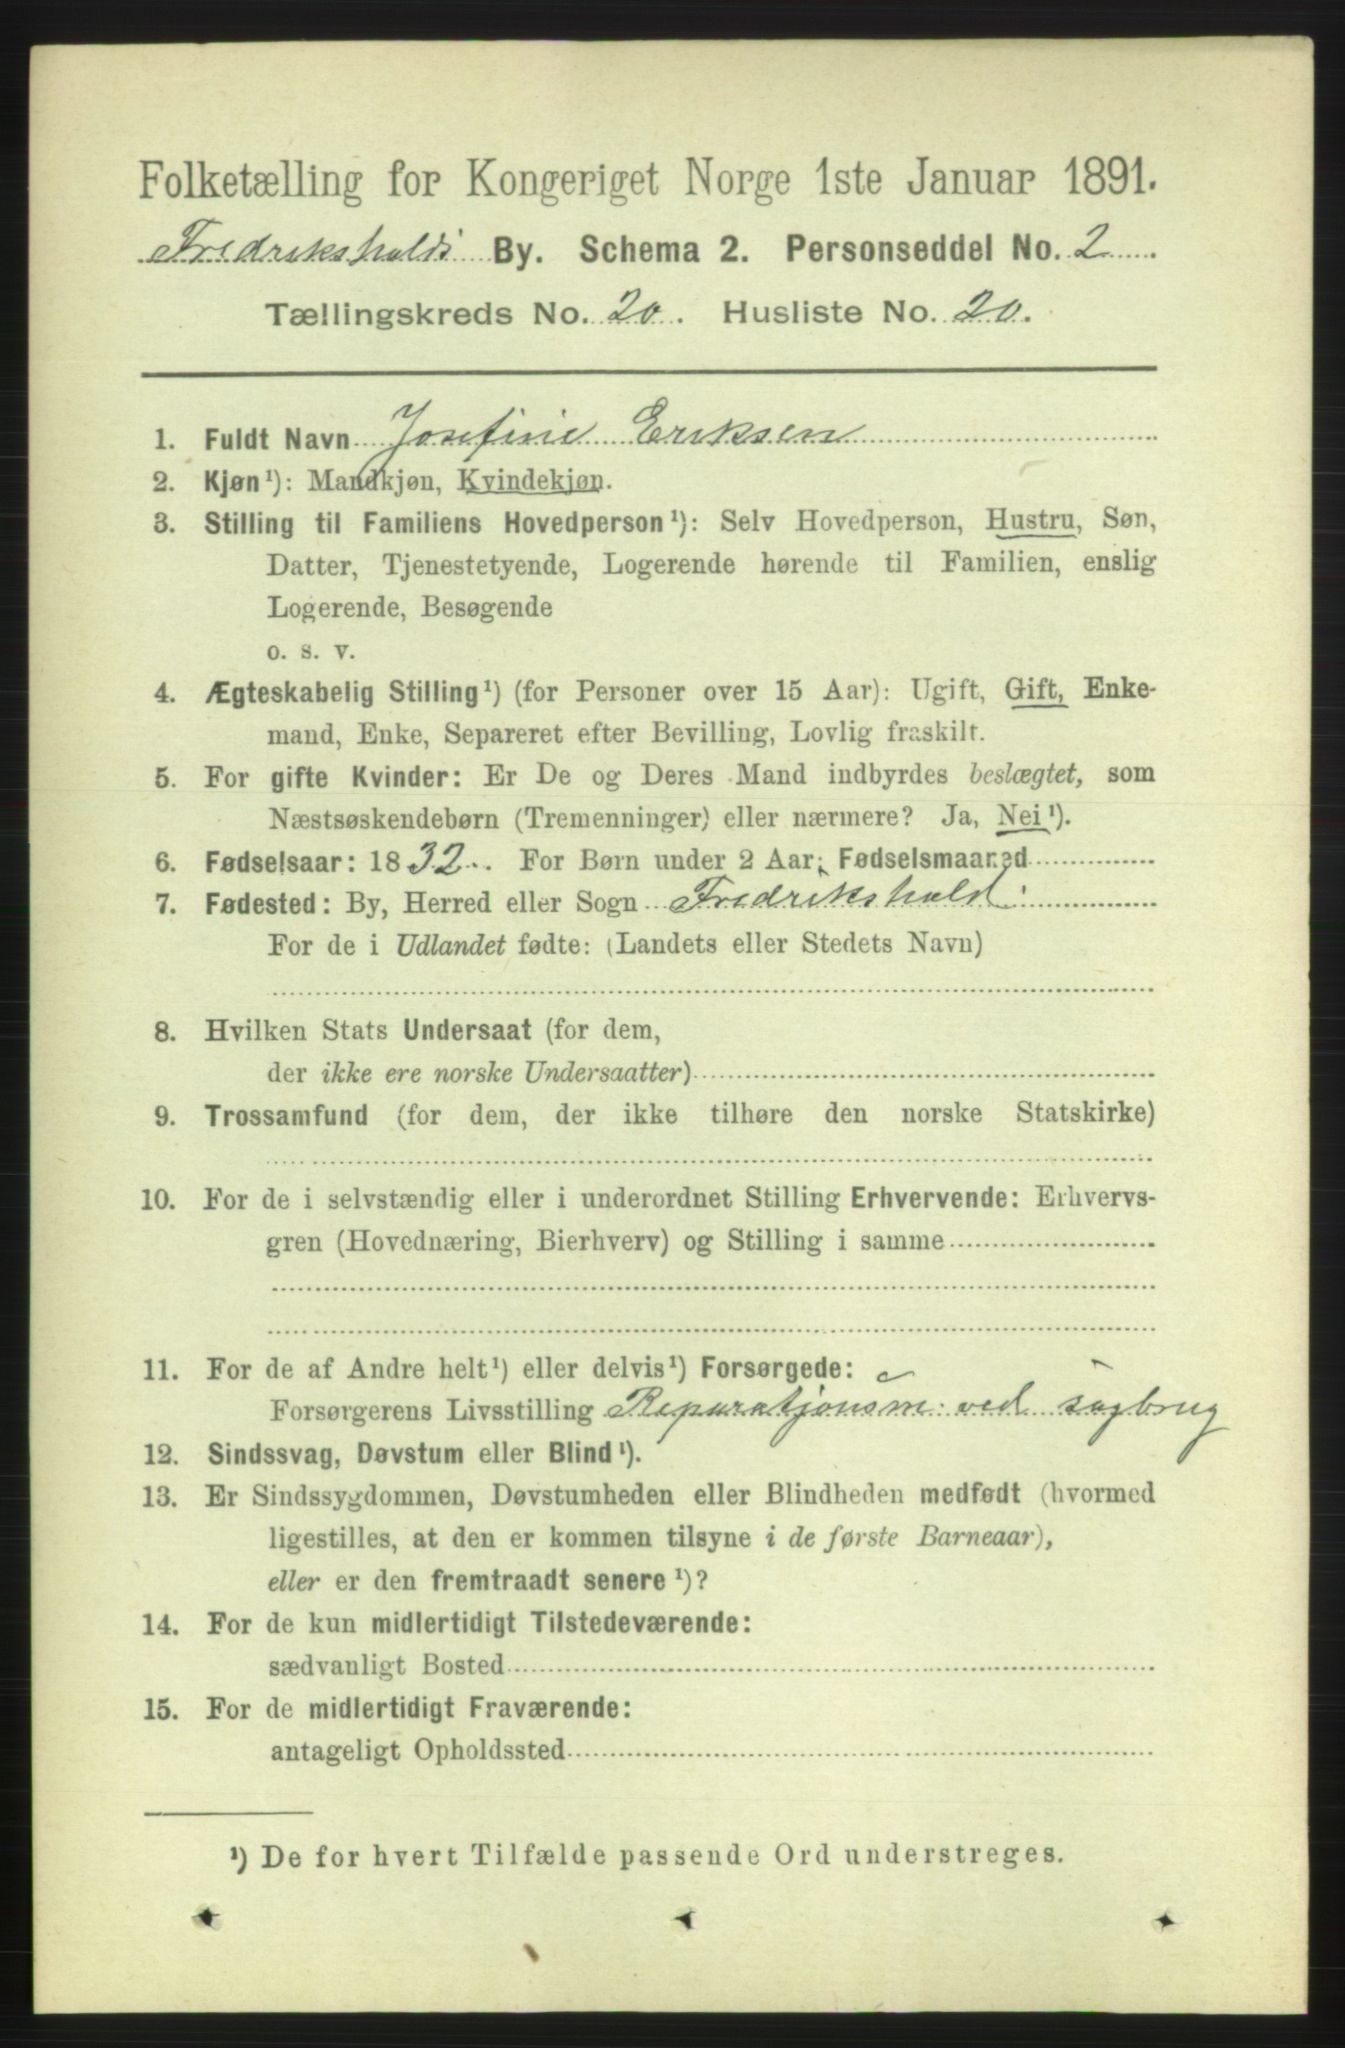 Folketælling for Kongeriget Norge 1ste Januar 1891.
Fredrikshalds By. Schema 2. Personseddel No. 2
Tællingskreds No. 20. Husliste No. 20.
1. Fuldt Navn Josefine Eriksen
2. Kjøn¹): Mandkjøn, Kvindekjøn.
3. Stilling til Familiens Hovedperson¹): Selv Hovedperson, Hustru, Søn,
Datter, Tjenestetyende, Logerende hørende til Familien, enslig
Logerende, Besøgende
o. s. v.
4. Ægteskabelig Stilling¹) (for Personer over 15 Aar): Ugift, Gift, Enke-
mand, Enke, Separeret efter Bevilling, Lovlig fraskilt.
5. For gifte Kvinder: Er De og Deres Mand indbyrdes beslægtet, som
Næstsøskendebørn (Tremenninger) eller nærmere? Ja, Nei¹).
6. Fødselsaar: 1832. For Børn under 2 Aar: Fødselsmaaned
7. Fødested: By, Herred eller Sogn Fredrikshald
For de i Udlandet fødte: (Landets eller Stedets Navn)
8. Hvilken Stats Undersaat (for dem,
der ikke ere norske Undersaatter)
9. Trossamfund (for dem, der ikke tilhøre den norske Statskirke)
10. For de i selvstændig eller i underordnet Stilling Erhvervende: Erhvervs-
gren (Hovednæring, Bierhverv) og Stilling i samme
11. For de af Andre helt¹) eller delvis¹) Forsørgede:
Forsørgerens Livsstilling Reparatjonsm: ved sagbrug
12. Sindssvag, Døvstum eller Blind¹).
13. Er Sindssygdommen, Døvstumheden eller Blindheden medfødt (hvormed
ligestilles, at den er kommen tilsyne i de første Barneaar),
eller er den fremtraadt senere¹)?
14. For de kun midlertidigt Tilstedeværende:
sædvanligt Bosted
15. For de midlertidigt Fraværende:
antageligt Opholdssted
¹) De for hvert Tilfælde passende Ord understreges.